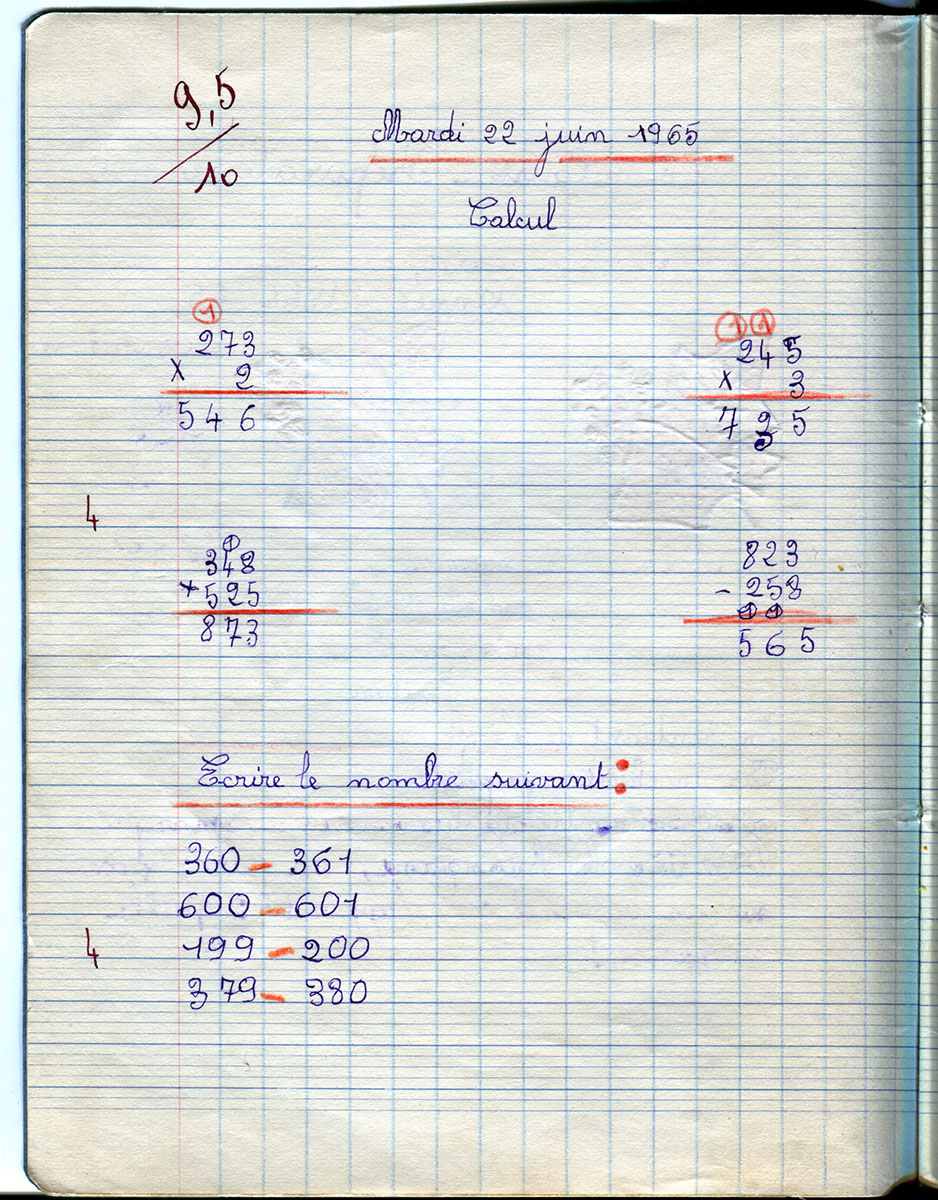 9,5
/10
Mardi 22 juin 1965
Calcul
1
273
x 2
546
1 1
245
x 3
7 5
4
1
348
+ 525
873
823
- 258
1 1
565
Ecrire le nombre suivant :
360 - 361
600 - 601
199 - 200
4
379 - 380